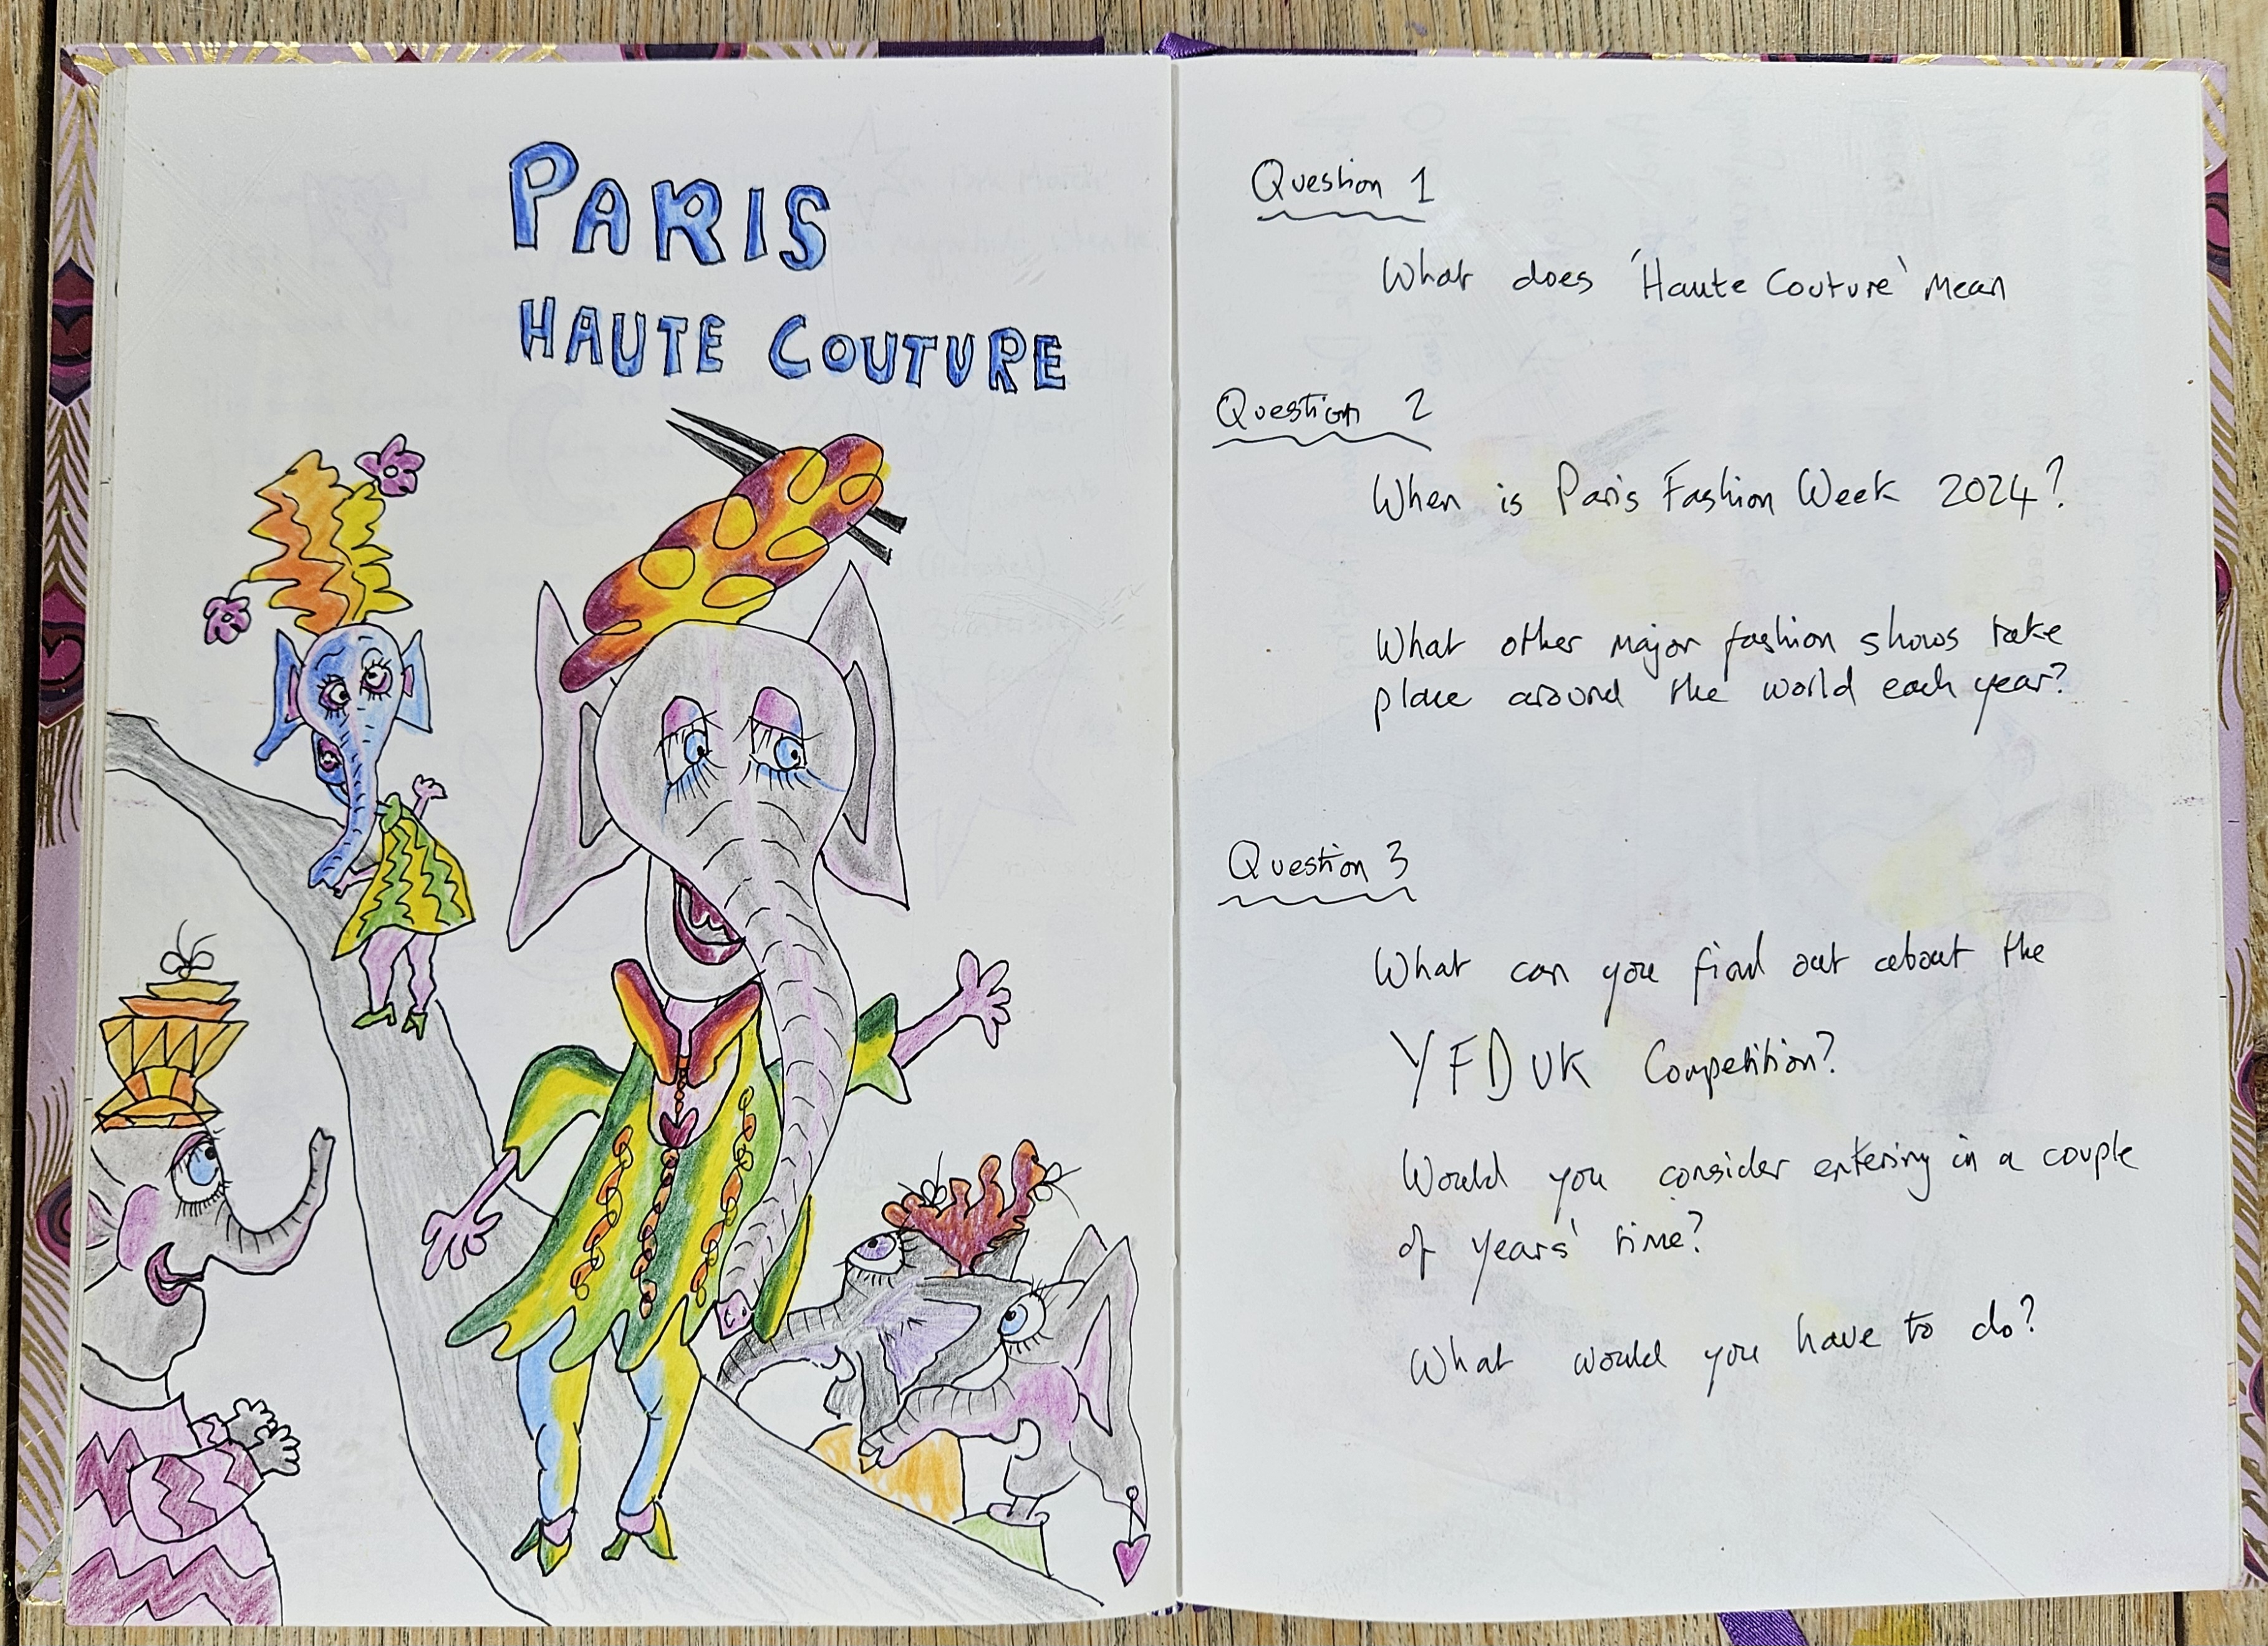 PARIS
HAUTE COUTURE
Question 1
What does 'Haute Couture' Mean
Question 2
When is Paris Fashion Week 2024?
What other major fashion shows take
place around the world each year?
Question 3
What can you find out about the
YFD UK Competition?
Would you consider entering in a couple
of years' time?
What would you have to do?